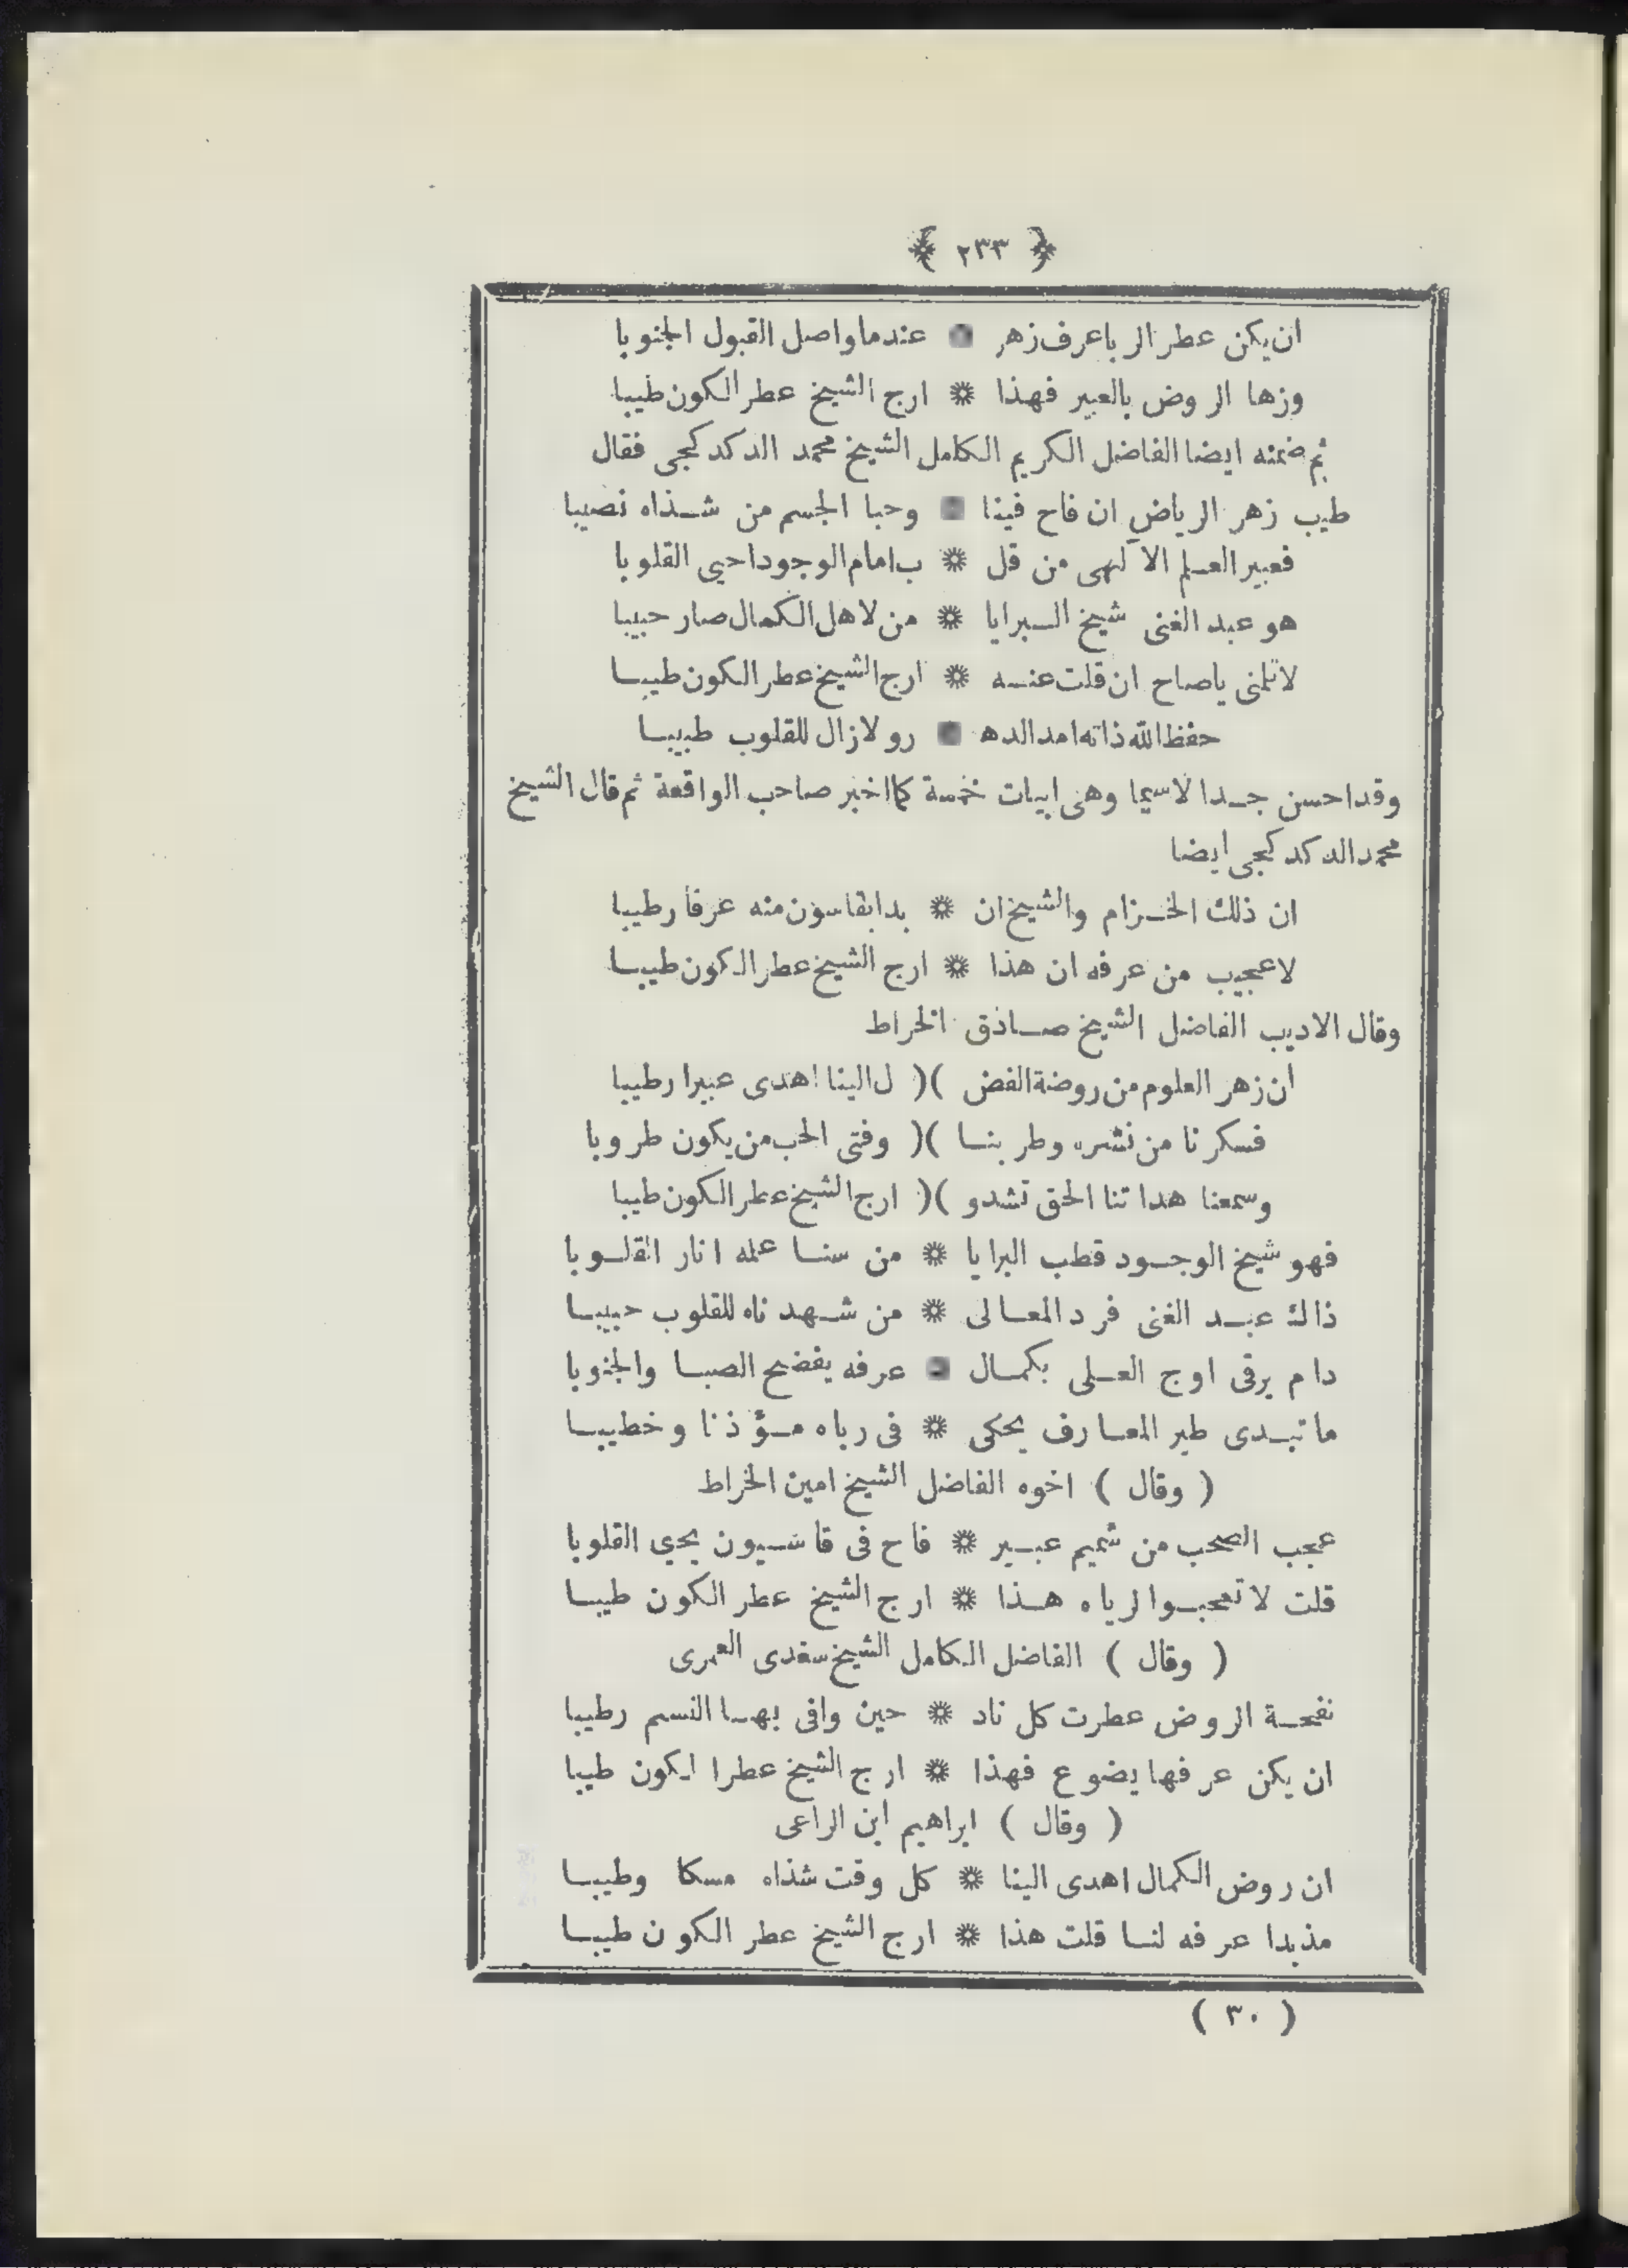 ﴿ ٢٣٣ ﴾
ان يكن عطر الربا عرف زهر * عندما واصل القبول الجنوبا
وزها الروض بالعبير فهذا * ارج الشيخ عطر الكون طيبا
ثم ضمنه ايضا الفاضل الكريم الكامل الشيخ محمد الدكدكجى فقال
طيب زهر الرياض ان فاح فينا * وحبا الجسم من شذاه نصيبا
فعبير العلم الآلهى من قل * ب امام الوجود احيى القلوبا
هو عبد الغنى شيخ البرايا * من لاهل الكمال صار حبيبا
لا تلمنى ياصاح ان قلت عنه * ارج الشيخ عطر الكون طيبا
حفظ الله ذاته امد الده * ر ولازال للقلوب طبيبا
وقد احسن جدا لاسيما وهى ابيات خمسة كما اخبر صاحب الواقعة ثم قال الشيخ
محمد الدكدكجى ايضا
ان ذلك الخزام والشيخ ان * بدا بقاسون منه عرفا رطيبا
لا عجيب من عرفه ان هذا * ارج الشيخ عطر الكون طيبا
وقال الاديب الفاضل الشيخ صادق الخراط
ان زهر العلوم من روضة الفض )( ل الينا اهدى عبيرا رطيبا
فسكرنا من نشره وطربنا )( وفتى الحب من يكون طروبا
وسمعنا هداتنا الحق تشدو )( ارج الشيخ عطر الكون طيبا
فهو شيخ الوجود قطب البرايا * من سنا علمه انار القلوبا
ذاك عبد الغنى فرد المعالى * من شهدناه للقلوب حبيبا
دام يرقى اوج العلى بكمال * عرفه يفضح الصبا والجنوبا
ما تبدى طير المعارف يحكى * فى رباه مؤذنا وخطيبا
( وقال ) اخوه الفاضل الشيخ امين الخراط
عجب الصحب من شميم عبير * فاح فى قاسيون يحيى القلوبا
قلت لا تعجبوا لرياه هذا * ارج الشيخ عطر الكون طيبا
( وقال ) الفاضل الكامل الشيخ سعدى العمرى
نفحة الروض عطرت كل ناد * حين وافى بها النسم رطيبا
ان يكن عرفها يضوع فهذا * ارج الشيخ عطر الكون طيبا
( وقال ) ابراهيم ابن الراعى
ان روض الكمال اهدى الينا * كل وقت شذاه مسكا وطيبا
مذ بدا عرفه لنا قلت هذا * ارج الشيخ عطر الكون طيبا
( ٣٠ )